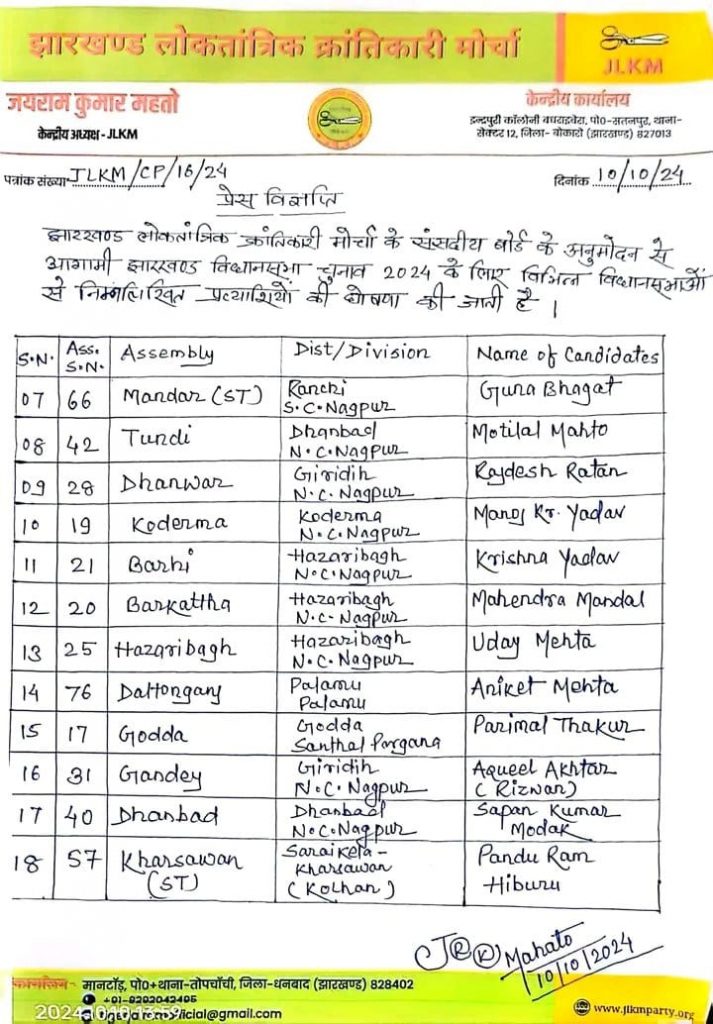 झारखण्ड लोकतांत्रिक क्रांतिकारी मोर्चा
JLKM
जयराम कुमार महतो
केन्द्रीय अध्यक्ष - JLKM
केन्द्रीय कार्यालय
इन्द्रपुरी कॉलोनी बघराइबेरा, पो०-सतनपुर, थाना-
सेक्टर 12, जिला- बोकारो (झारखण्ड) 827013
पत्रांक संख्या JLKM/CP/16/24
दिनांक 10/10/24
प्रेस विज्ञप्ति
झारखण्ड लोकतांत्रिक क्रांतिकारी मोर्चा के संसदीय बोर्ड के अनुमोदन से
आगामी झारखण्ड विधानसभा चुनाव 2024 के लिए विभिन्न विधानसभाओं
से निम्नलिखित प्रत्याशियों की घोषणा की जाती है।
S.N. Ass. S.N. Assembly Dist/Division Name of Candidates
07 66 Mandar (ST) Ranchi S.C.Nagpur Guna Bhagat
08 42 Tundi Dhanbad N.C.Nagpur Motilal Mahto
09 28 Dhanwar Giridih N.C.Nagpur Rajdesh Ratan
10 19 Koderma Koderma N.C.Nagpur Manoj Kr. Yadav
11 21 Barhi Hazaribagh N.C.Nagpur Krishna Yadav
12 20 Barkattha Hazaribagh N.C-Nagpur Mahendra Mandal
13 25 Hazaribagh Hazaribagh N.C.Nagpur Uday Mehta
14 76 Daltonganj Palamu Palamu Aniket Mehta
15 17 Godda Godda Santhal Pargana Parimal Thakur
16 31 Gandey Giridih N.C.Nagpur Aqueel Akhtar (Rizwan)
17 40 Dhanbad Dhanbad N.C.Nagpur Sapan Kumar Modak
18 57 Kharsawan (ST) Saraikela-Kharsawan (Kolhan) Pandu Ram Hiburu
Mahato
10/10/2024
मानटाँड़, पो०+थाना-तोपचाँची, जिला-धनबाद (झारखण्ड) 828402
www.jlkmparty.org